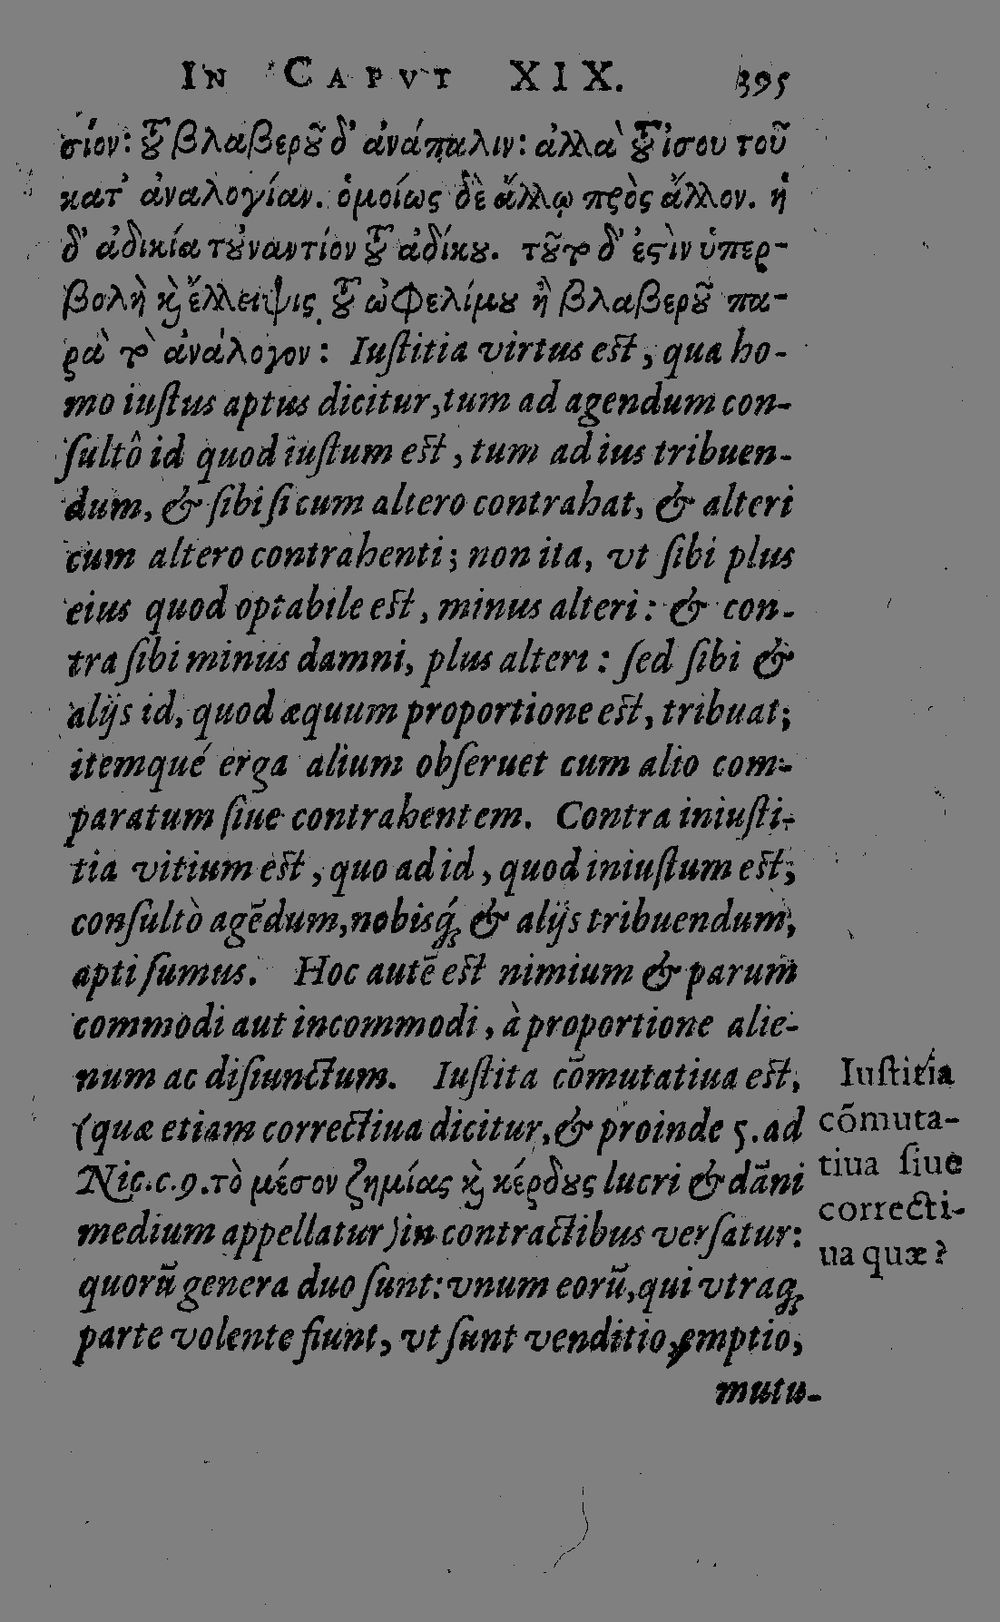 IN CAPVT XIX. 395
σίον: τοῦ βλαβεροῦ δ' ἀνάπαλιν: ἀλλὰ τοῦ ἴσου τοῦ
κατ' ἀναλογίαν. ὁμοίως δὲ ἄλλῳ πρὸς ἄλλον. ἡ
δ' ἀδικία τοὐναντίον τοῦ ἀδίκου. τοῦτο δ' ἐςὶν ὑπερ-
βολὴ καὶ ἔλλειψις τοῦ ὠφελίμου ἢ βλαβεροῦ πα-
ρὰ τὸ ἀνάλογον: Iuſtitia virtus eſt, qua ho-
mo iuſtus aptus dicitur, tum ad agendum con-
ſultô id quod iuſtum eſt, tum ad ius tribuen-
dum, & ſibi ſi cum altero contrahat, & alteri
cum altero contrahenti; non ita, vt ſibi plus
eius quod optabile eſt, minus alteri: & con-
tra ſibi minus damni, plus alteri: ſed ſibi &
alijs id, quod æquum proportione eſt, tribuat;
itemqué erga alium obſeruet cum alio com-
paratum ſiue contrahentem. Contra iniuſti-
tia vitium eſt, quo ad id, quod iniuſtum eſt,
conſultò agēdum, nobisq́; & alijs tribuendum,
apti ſumus. Hoc autē eſt nimium & parum
commodi aut incommodi, à proportione alie-
num ac diſiunctum. Iuſtita cōmutatiua eſt,
(quæ etiam correctiua dicitur, & proinde 5. ad
Nic. c. 9. τὸ μέσον ζημίας καὶ κέρδους lucri & dāni
medium appellatur) in contractibus verſatur:
quorū genera duo ſunt: vnum eorū, qui vtraq;
parte volente fiunt, vt ſunt venditio, emptio,
mutu-
Iuſtitia
cōmuta-
tiua ſiue
correcti-
ua quæ?